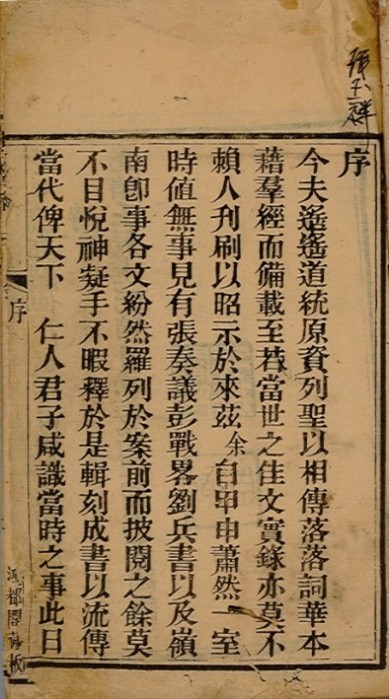 序
今夫遙遙道統原資列聖以相傳落落詞華本
藉羣經而備載至若當世之佳文實錄亦莫不
賴人刋刷以昭示於來茲余自甲申蕭然一室
時值無事見有張奏議彭戰畧劉兵書以及嶺
南卽事各文紛然羅列於案前而披閱之餘莫
不目悅神凝手不暇釋於是輯刻成書以流傳
當代俾天下 仁人君子咸識當時之事此日
序